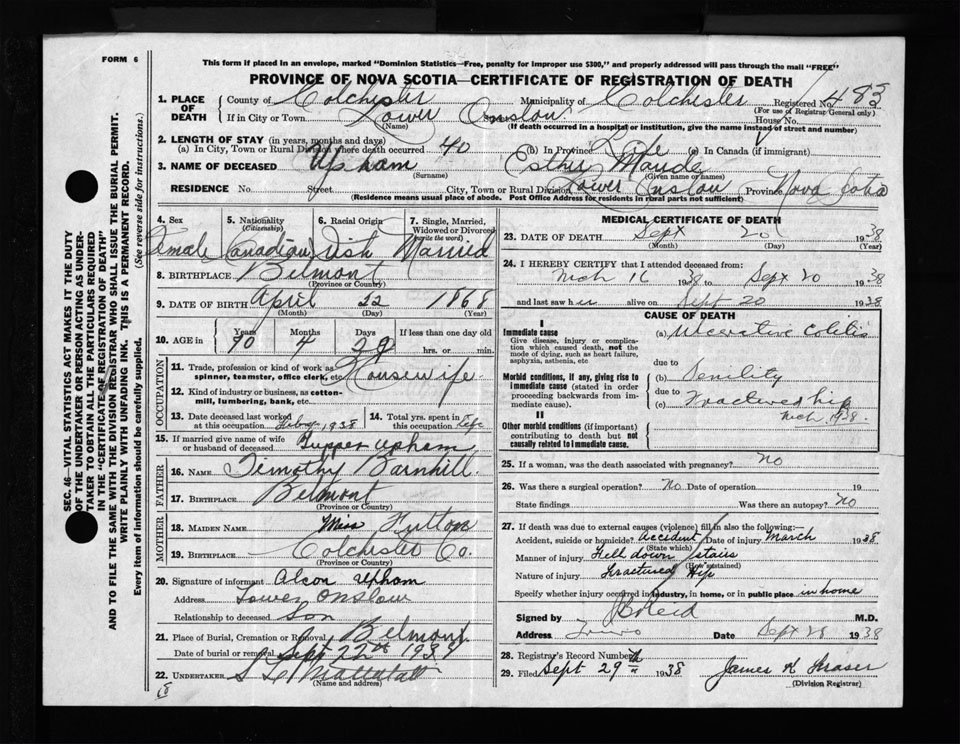 FORM 6
This form if placed in an envelope, marked "Dominion Statistics—Free, penalty for improper use $300," and properly addressed will pass through the mail "FREE"
PROVINCE OF NOVA SCOTIA—CERTIFICATE OF REGISTRATION OF DEATH
1. PLACE OF DEATH County of Colchester Municipality of Colchester Registered No. 483
(For use of Registrar General only)
If in City or Town Lower Onslow House No.
(Name) (If death occurred in a hospital or institution, give the name instead of street and number)
2. LENGTH OF STAY (in years, months and days)
(a) In City, Town or Rural Division where death occurred 40 (b) In Province Life (c) In Canada (if immigrant)
3. NAME OF DECEASED Upham Esther Maude
(Surname) (Given name or names)
RESIDENCE No. Street City, Town or Rural Division Lower Onslow Province Nova Scotia
(Residence means usual place of abode. Post Office Address for residents in rural parts not sufficient)
4. Sex 5. Nationality (Citizenship) 6. Racial Origin 7. Single, Married, Widowed or Divorced (write the word)
Female Canadian Irish Married
8. BIRTHPLACE Belmont
(Province or Country)
9. DATE OF BIRTH April 22 1868
(Month) (Day) (Year)
10. AGE in Years Months Days If less than one day old
70 4 29 hrs. or min.
OCCUPATION
11. Trade, profession or kind of work as spinner, teamster, office clerk, etc. Housewife
12. Kind of industry or business, as cotton-mill, lumbering, bank, etc.
13. Date deceased last worked at this occupation 1938 14. Total yrs. spent in this occupation Life
15. If married give name of wife or husband of deceased Tupper Upham
FATHER
16. NAME Timothy Barnhill
17. BIRTHPLACE Belmont
(Province or Country)
MOTHER
18. MAIDEN NAME Miss Fulton
19. BIRTHPLACE Colchester Co.
(Province or Country)
20. Signature of informant Alcon Upham
Address Lower Onslow
Relationship to deceased Son
21. Place of Burial, Cremation or Removal Belmont
Date of burial or removal Sept 22nd 1938
22. UNDERTAKER
(Name and address)
MEDICAL CERTIFICATE OF DEATH
23. DATE OF DEATH Sept 20 1938
(Month) (Day) (Year)
24. I HEREBY CERTIFY that I attended deceased from:
Mch 16 1938 to Sept 20 1938
and last saw her alive on Sept 20 1938
CAUSE OF DEATH
I
Immediate cause (a) Ulcerative Colitis
Give disease, injury or complication which caused death, not the mode of dying, such as heart failure, asphyxia, asthenia, etc
due to
Morbid conditions, if any, giving rise to immediate cause (stated in order proceeding backwards from immediate cause). (b) Senility
due to
(c) Fractured hip
Mch 1938
II
Other morbid conditions (if important) contributing to death but not causally related to immediate cause.
25. If a woman, was the death associated with pregnancy? no
26. Was there a surgical operation? No Date of operation 19
State findings Was there an autopsy? no
27. If death was due to external causes (violence) fill in also the following:—
Accident, suicide or homicide? Accident Date of injury March 1938
(State which)
Manner of injury Fell down stairs
(How sustained)
Nature of injury Fractured Hip
Specify whether injury occurred in industry, in home, or in public place in home
Signed by M.D.
Address Truro Date Sept 28 1938
28. Registrar's Record Number
29. Filed Sept 29th 1938 James K Fraser
(Division Registrar)
SEC. 46—VITAL STATISTICS ACT MAKES IT THE DUTY
OF THE UNDERTAKER OR PERSON ACTING AS UNDER-
TAKER TO OBTAIN ALL THE PARTICULARS REQUIRED
IN THE "CERTIFICATE OF REGISTRATION OF DEATH"
AND TO FILE THE SAME WITH THE DIVISION REGISTRAR WHO SHALL ISSUE THE BURIAL PERMIT.
WRITE PLAINLY WITH UNFADING INK. THIS IS A PERMANENT RECORD.
Every item of information should be carefully supplied. (See reverse side for instructions.)